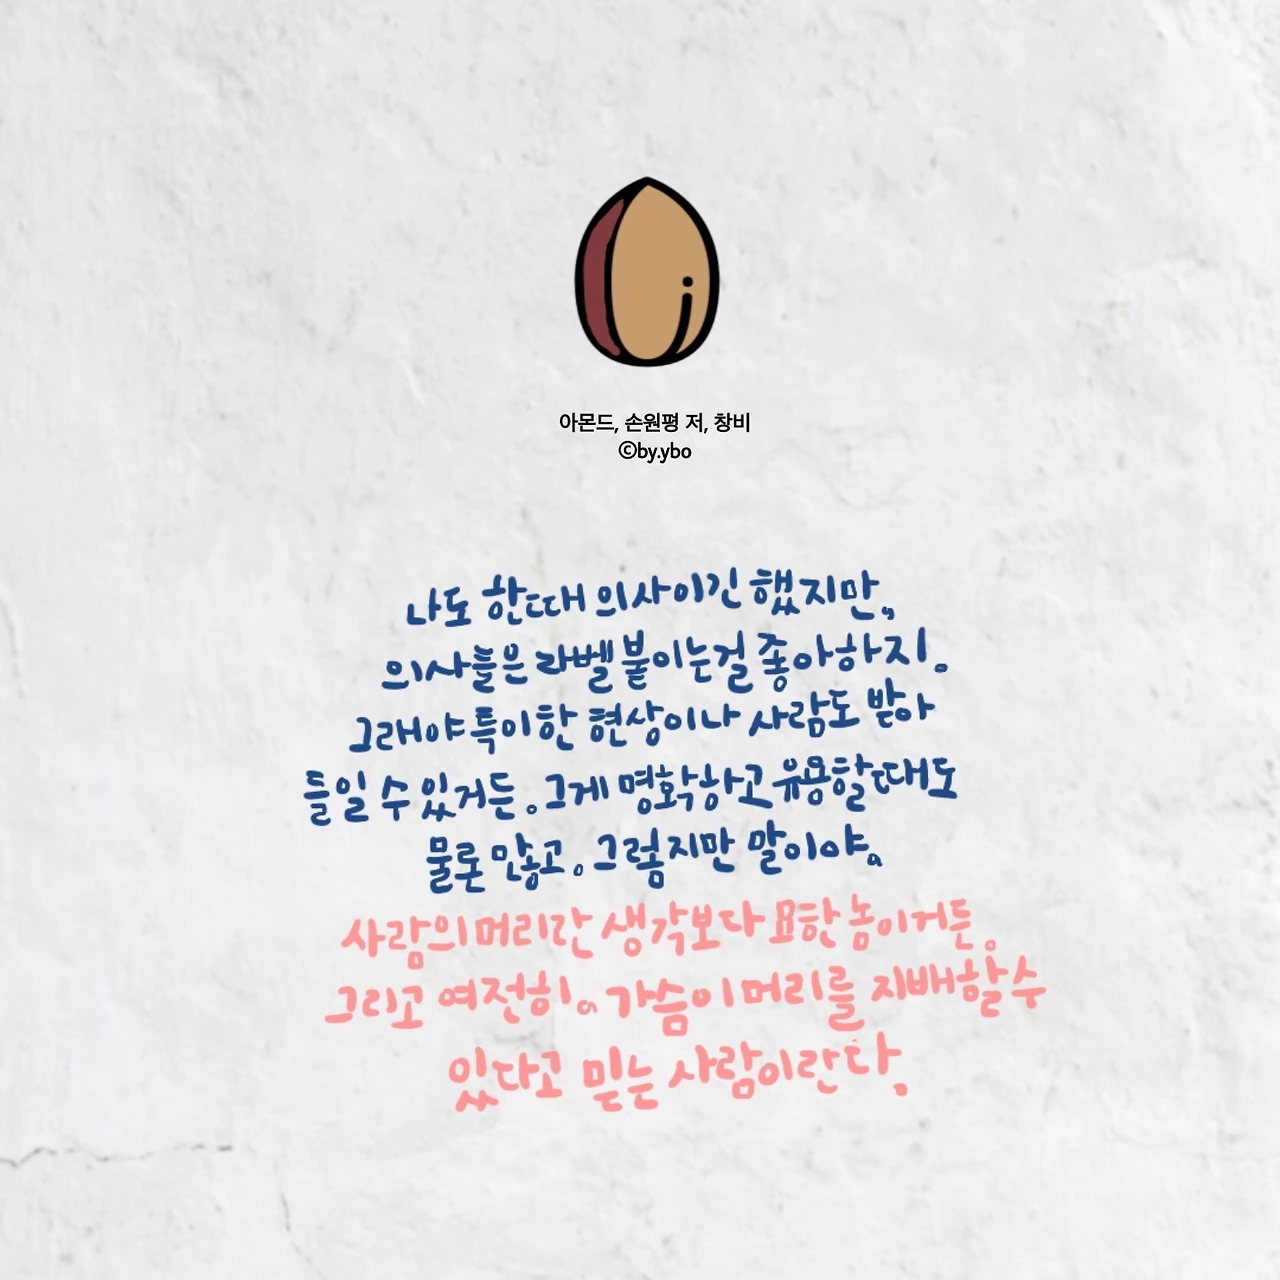 아몬드, 손원평 저, 창비
©by.ybo
나도 한때 의사이긴 했지만,
의사들은 라벨 붙이는걸 좋아하지.
그래야 특이한 현상이나 사람도 받아
들일 수 있거든. 그게 명확하고 유용할때도
물론 많고. 그렇지만 말이야.
사람의 머리란 생각보다 묘한 놈이거든.
그리고 여전히. 가슴이 머리를 지배할 수
있다고 믿는 사람이란다.